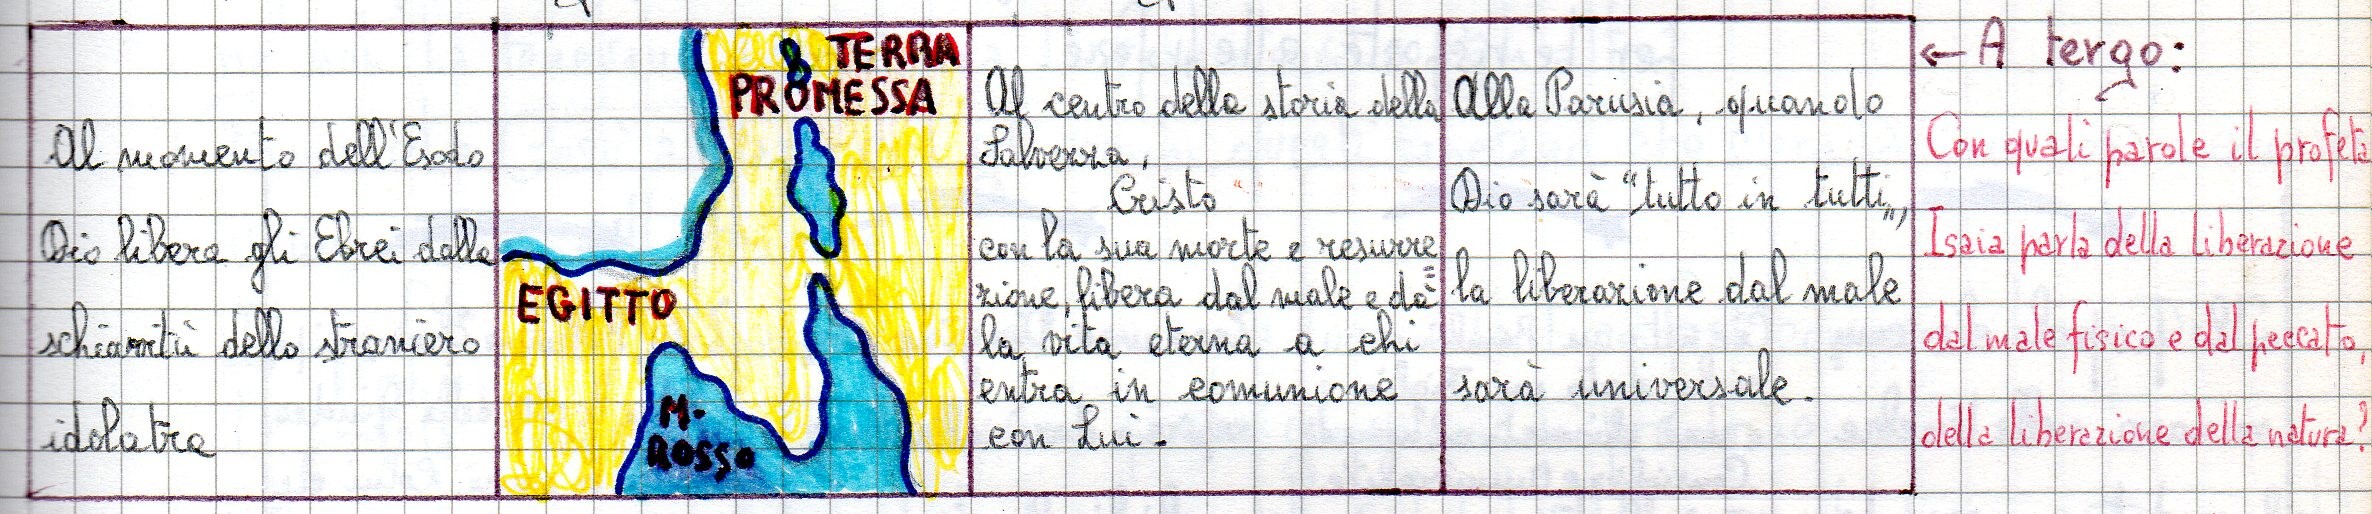 Al momento dell'Esodo
Dio libera gli Ebrei dalla
schiavitù dello straniero
idolatra
TERRA
PROMESSA
EGITTO
M.
ROSSO
Al centro della storia della
Salvezza,
Cristo
con la sua morte e resurre=
zione, libera dal male e dà
la vita eterna a chi
entra in comunione
con Lui.
Alla Parusia, quando
Dio sarà "tutto in tutti",
la liberazione dal male
sarà universale.
← A tergo:
Con quali parole il profeta
Isaia parla della liberazione
dal male fisico e dal peccato,
della liberazione della natura?